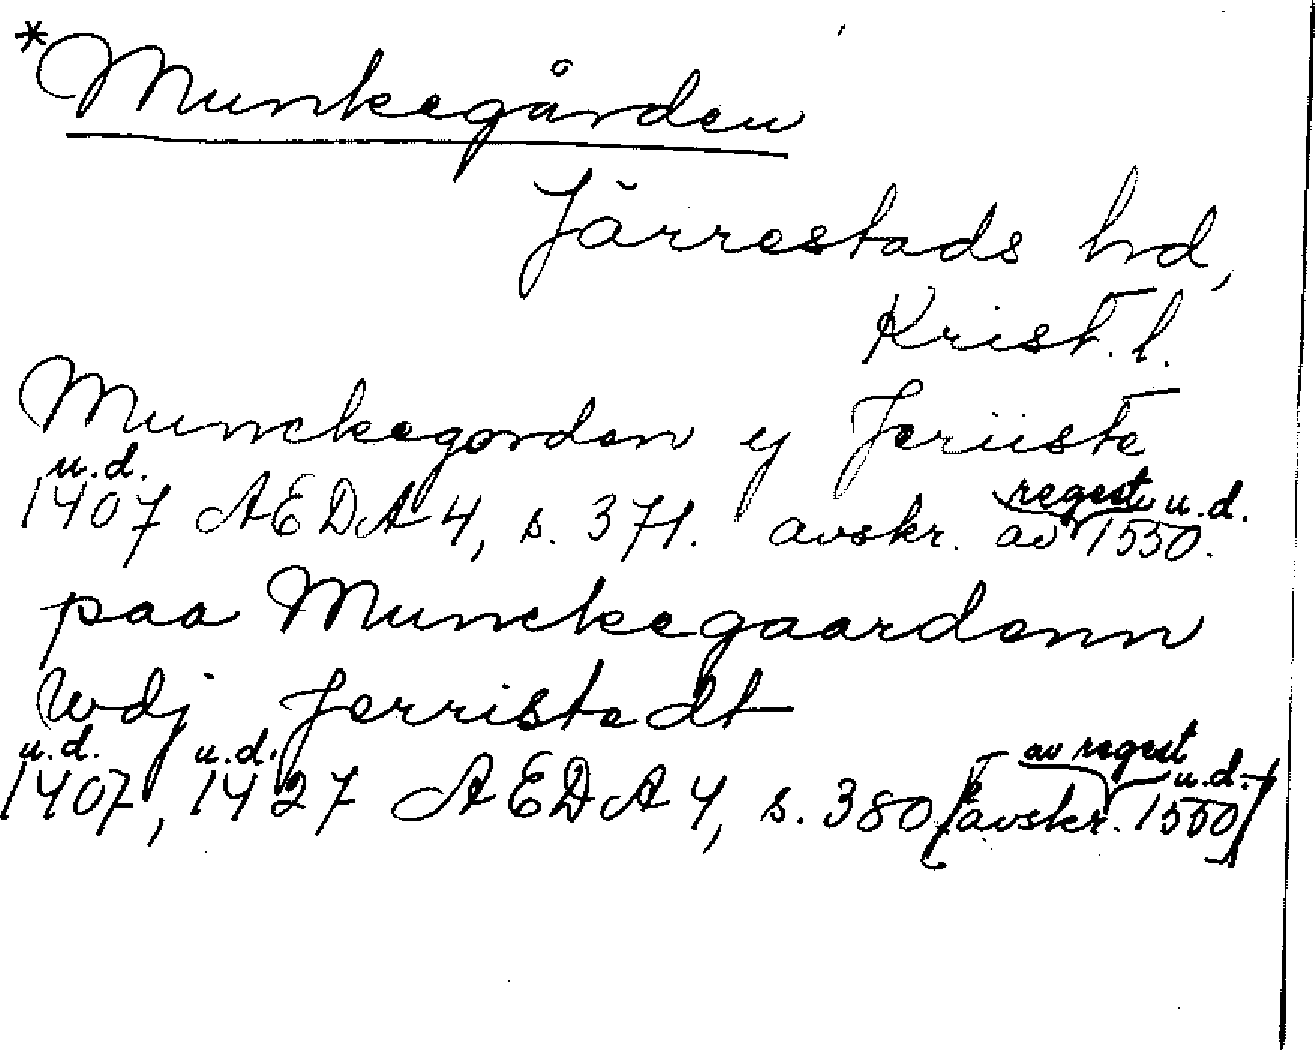 *Munkegården
Järrestads hd,
Krist. l.
Munckegorden y Jeriiste
u.d. regest u.d.
1407 AEDA 4, s. 371. avskr. av 1550.
paa Munckegaardenn
wdj Jerristedt
u.d. u.d. av regest u.d.
1407, 1427 AEDA 4, s. 380 [avskr. 1550]